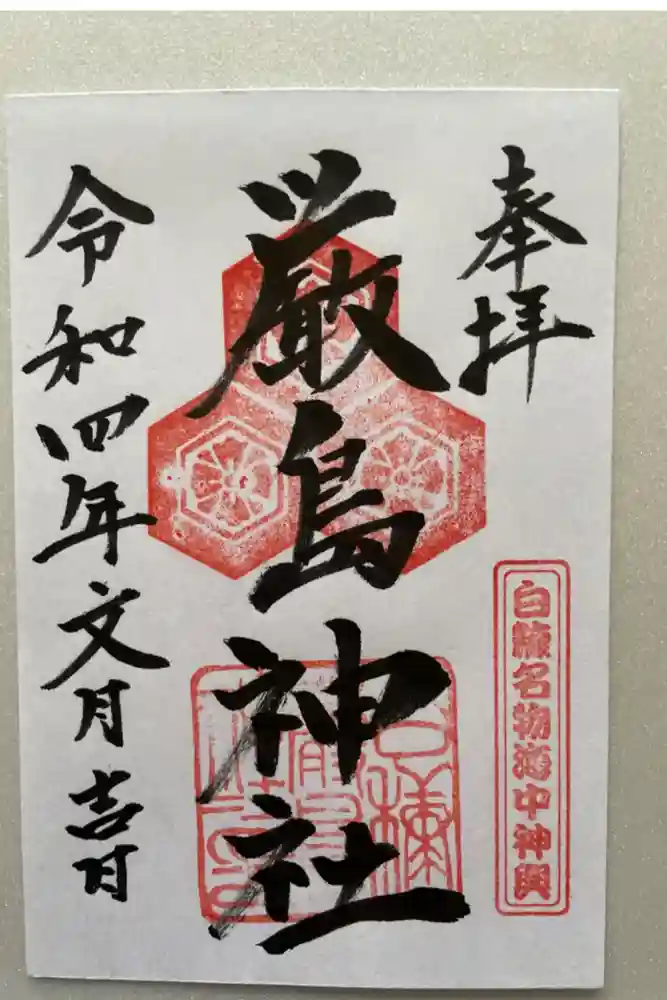 奉拝
白糠名物海中神輿
厳島神社
令和四年文月吉日